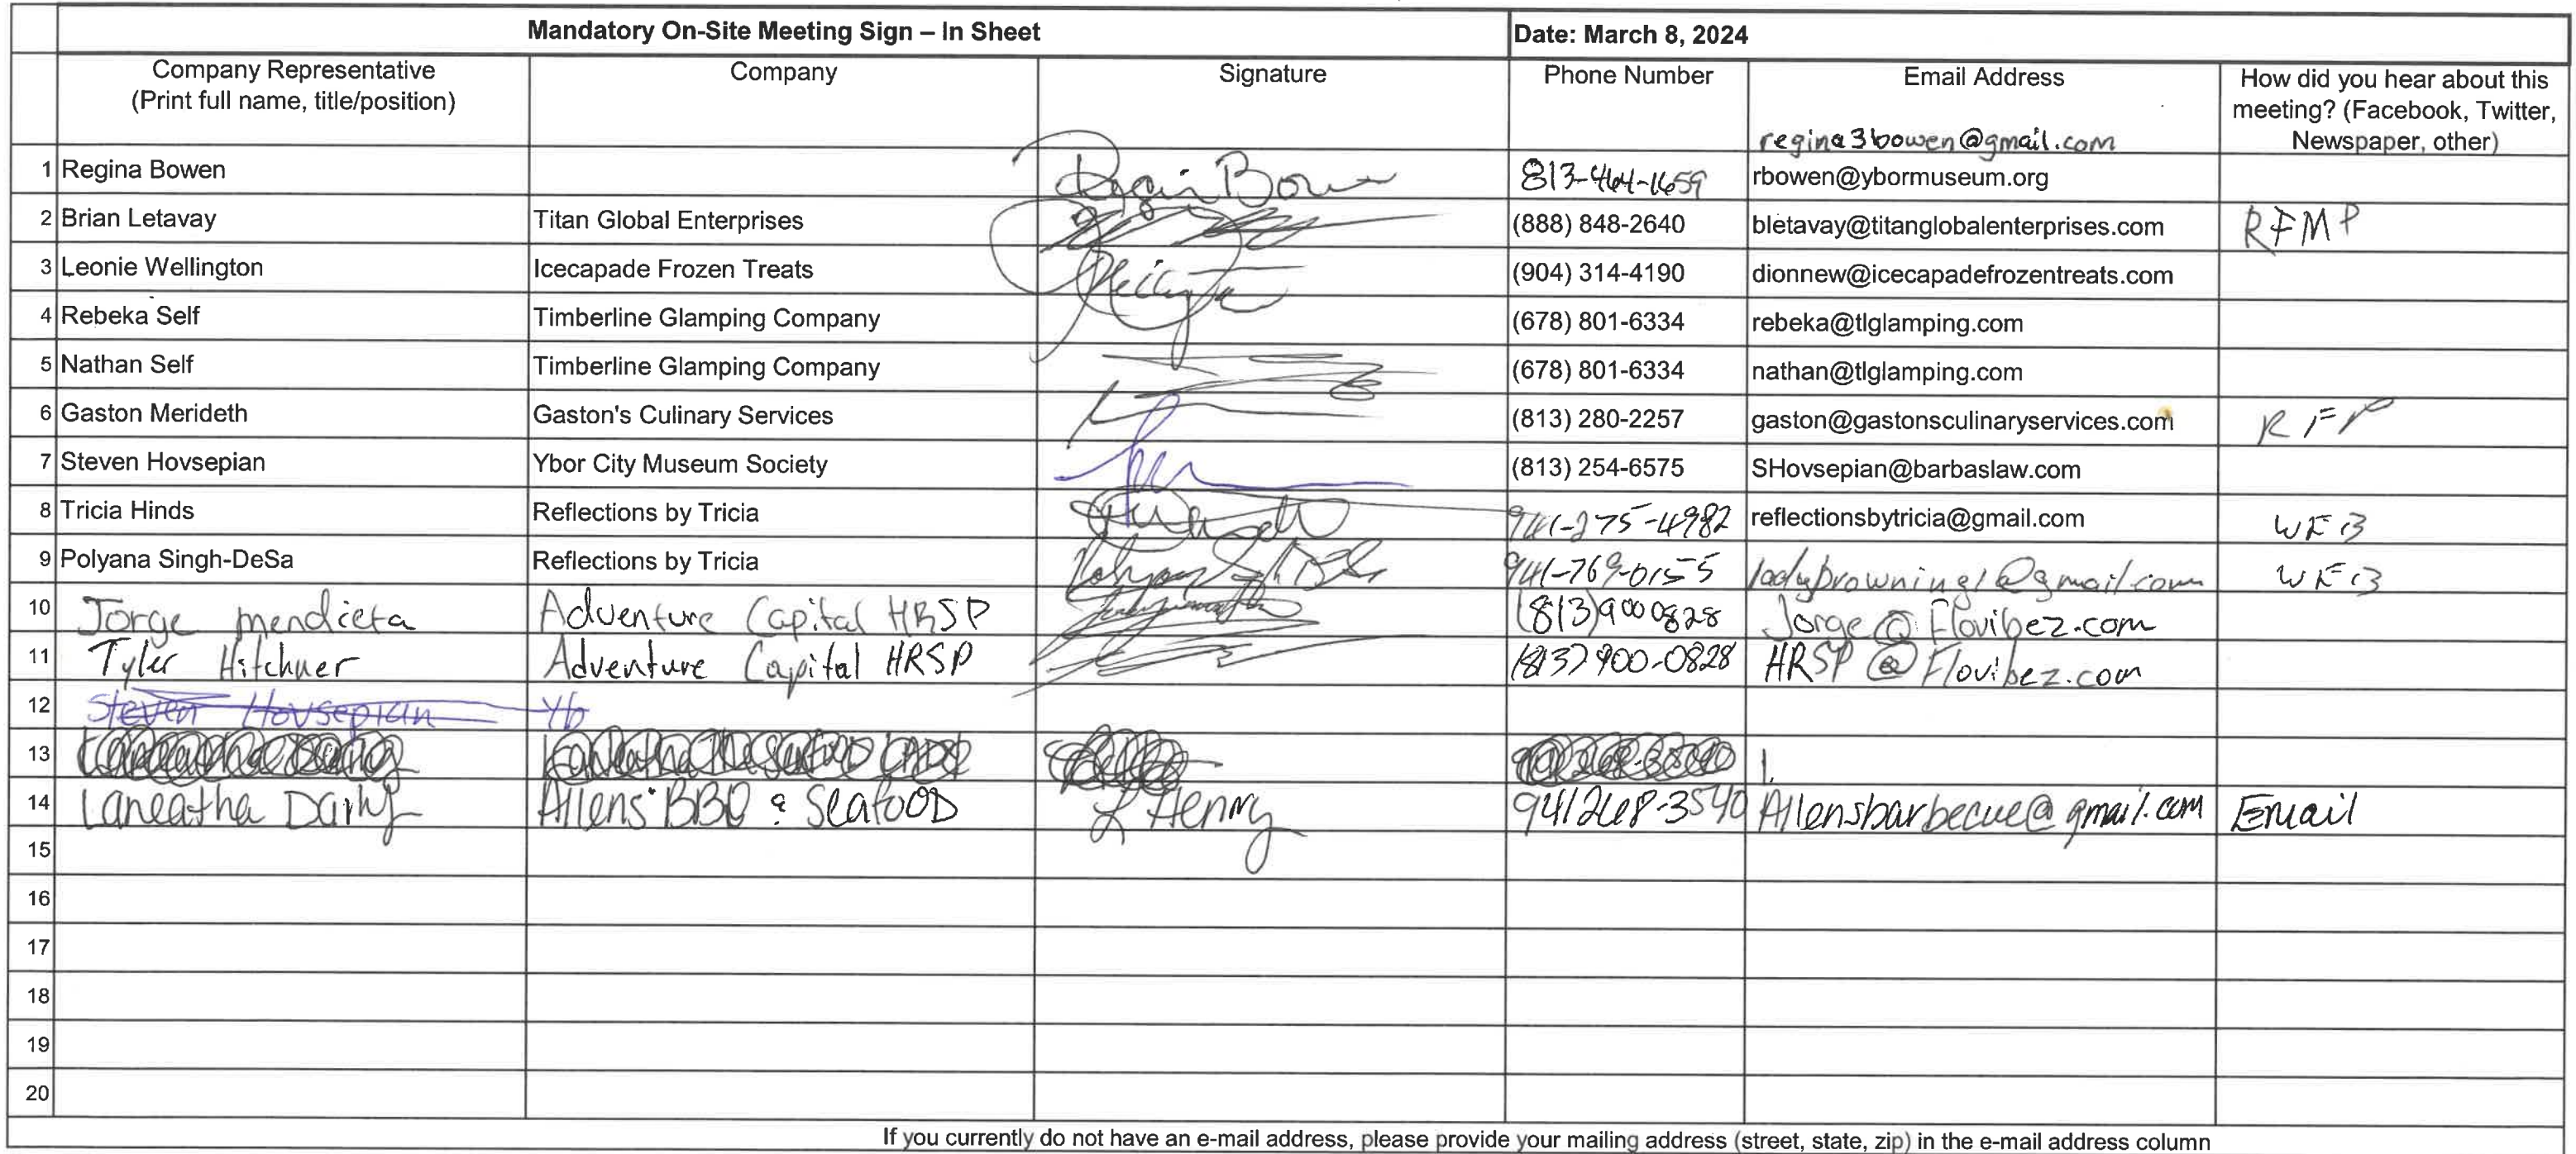 Mandatory On-Site Meeting Sign – In Sheet Date: March 8, 2024
Company Representative Company Signature Phone Number Email Address How did you hear about this
(Print full name, title/position) meeting? (Facebook, Twitter,
regina3bowen@gmail.com Newspaper, other)
1 Regina Bowen Regina Bowen 813-464-1659 rbowen@ybormuseum.org
2 Brian Letavay Titan Global Enterprises (888) 848-2640 bletavay@titanglobalenterprises.com RFMP
3 Leonie Wellington Icecapade Frozen Treats (904) 314-4190 dionnew@icecapadefrozentreats.com
4 Rebeka Self Timberline Glamping Company (678) 801-6334 rebeka@tlglamping.com
5 Nathan Self Timberline Glamping Company (678) 801-6334 nathan@tlglamping.com
6 Gaston Merideth Gaston's Culinary Services (813) 280-2257 gaston@gastonsculinaryservices.com RFP
7 Steven Hovsepian Ybor City Museum Society (813) 254-6575 SHovsepian@barbaslaw.com
8 Tricia Hinds Reflections by Tricia 941-275-4982 reflectionsbytricia@gmail.com WEB
9 Polyana Singh-DeSa Reflections by Tricia 941-769-0155 ladybrowning1@gmail.com WEB
10 Jorge mendieta Adventure Capital HRSP (813)9000828 Jorge@Flovibez.com
11 Tyler Hitchner Adventure Capital HRSP (813)900-0828 HRSP@Flovibez.com
12 Steven Hovsepian Yb
13
14 Laneatha Allens BBQ & SeafOOD L Henry 941268-3540 Allensbarbecue@gmail.com Email
15
16
17
18
19
20
If you currently do not have an e-mail address, please provide your mailing address (street, state, zip) in the e-mail address column